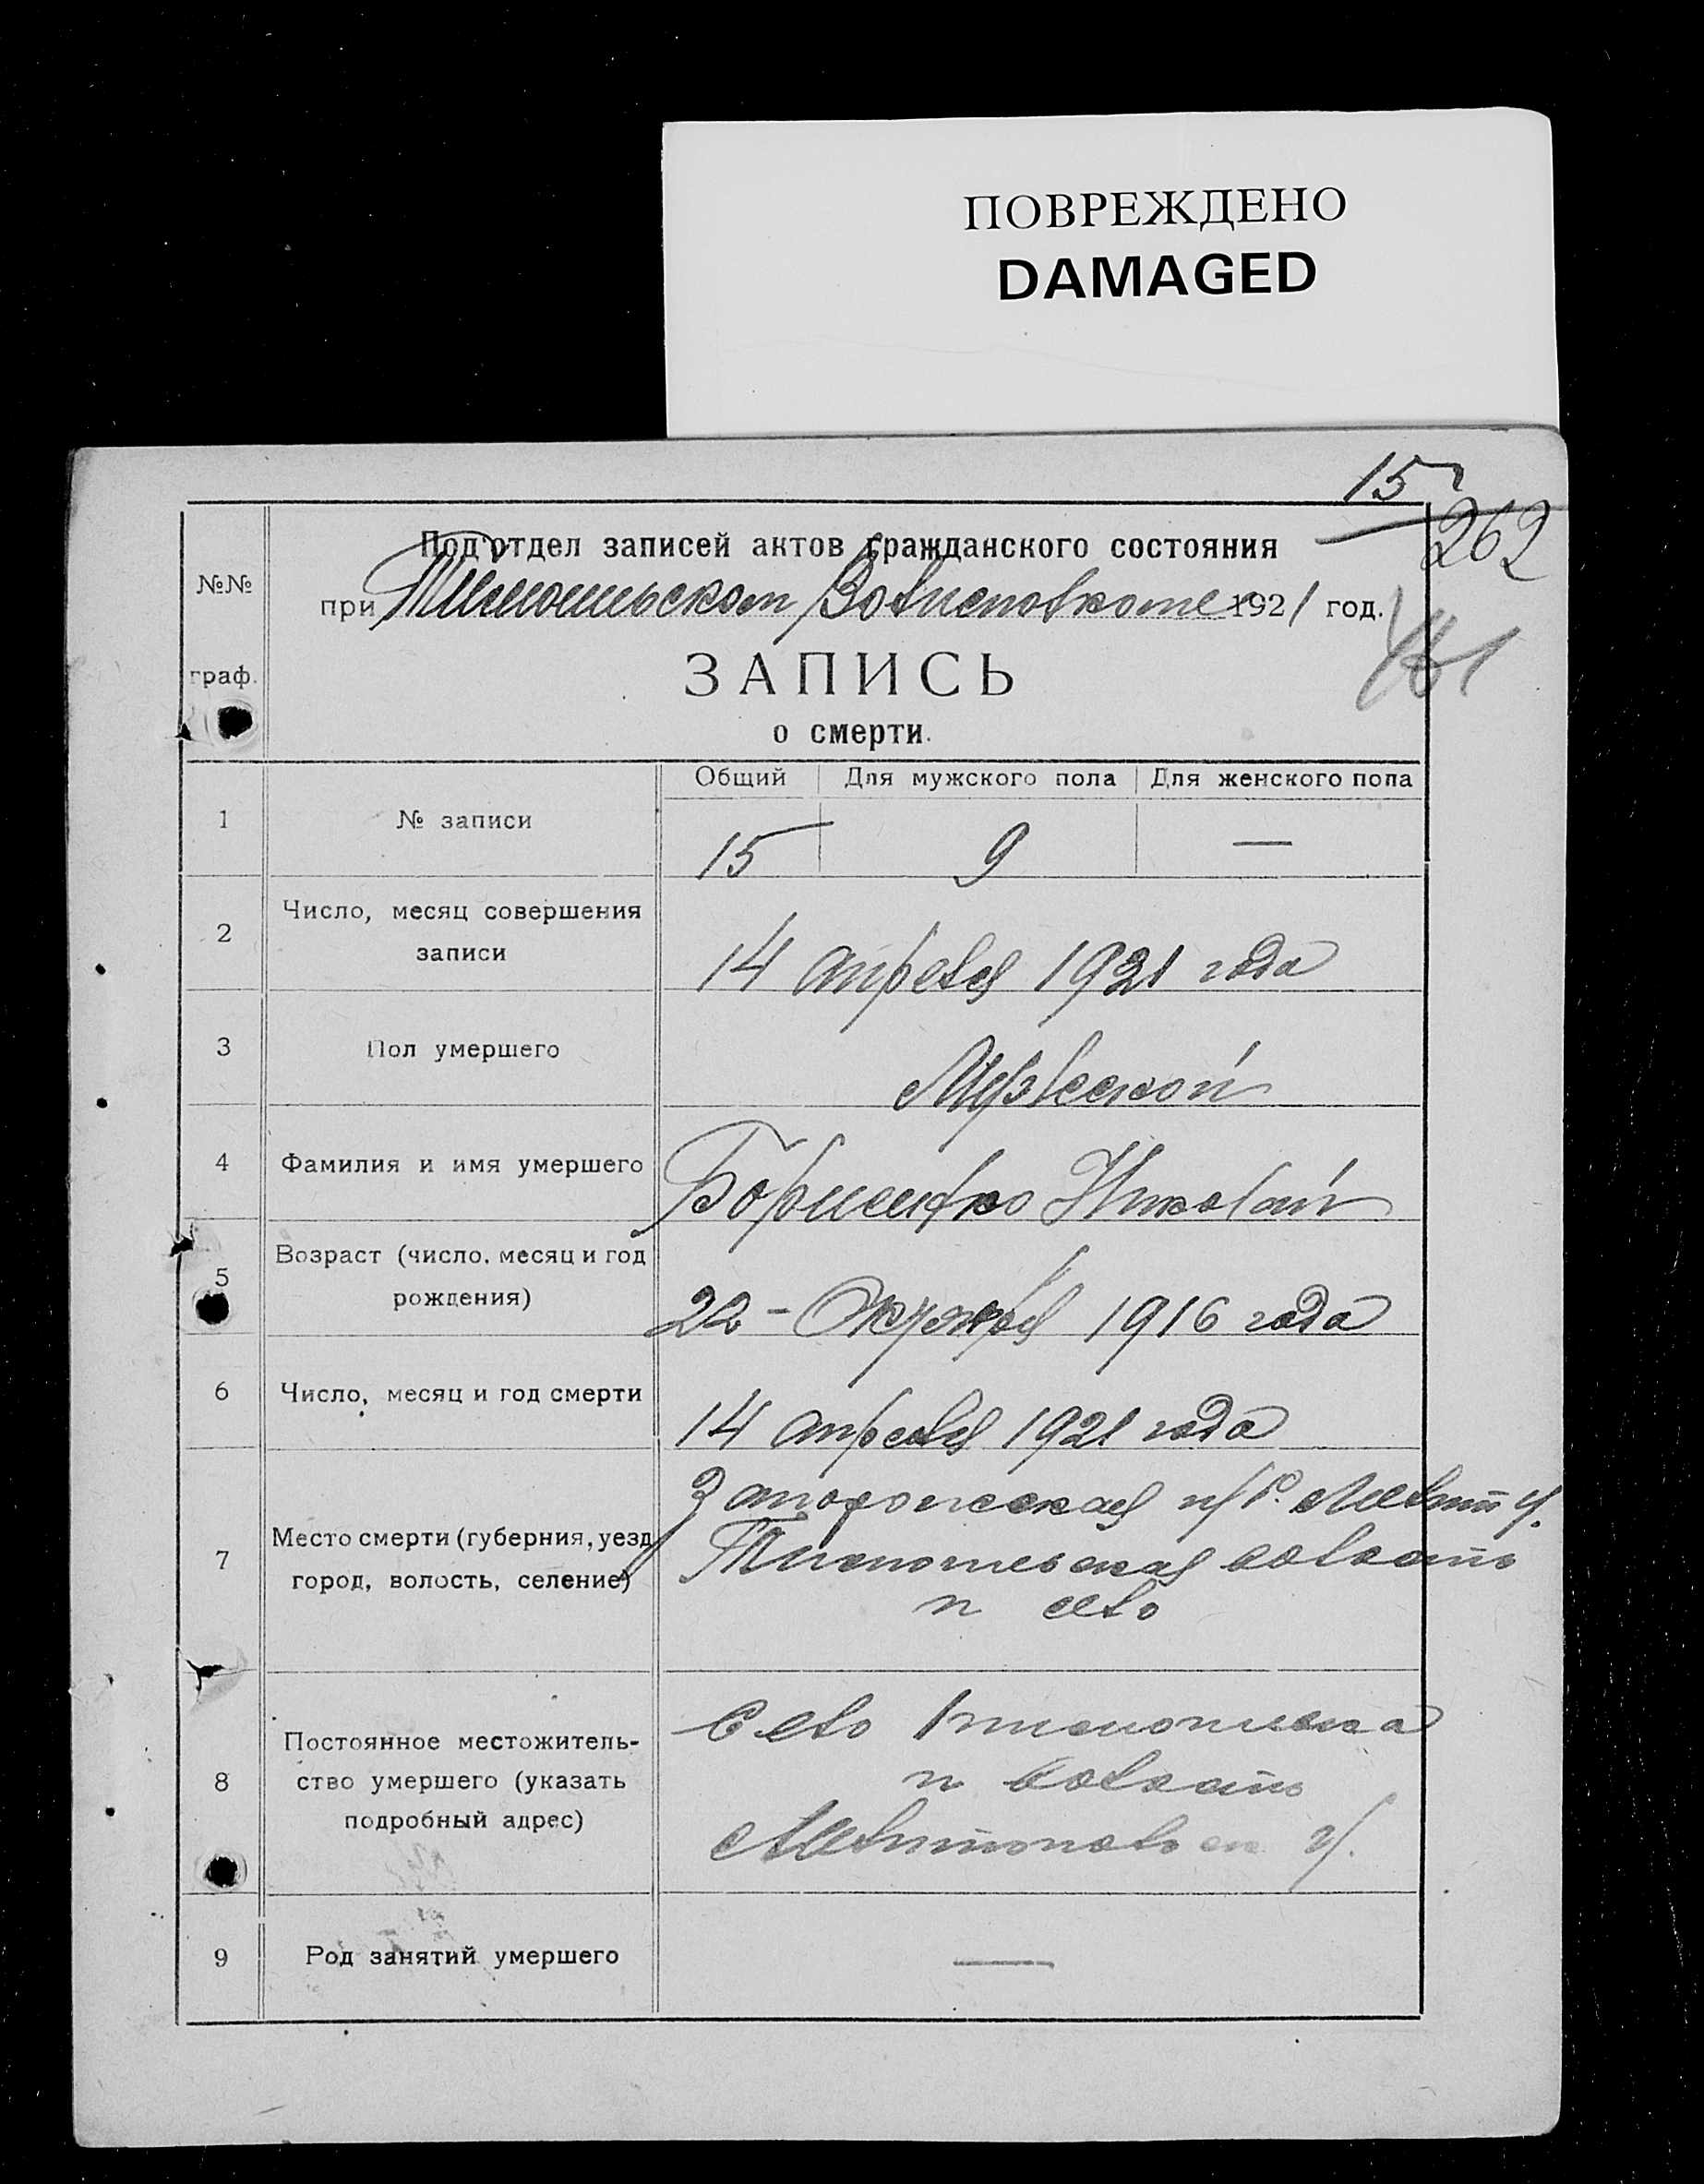 ПОВРЕЖДЕНО
DAMAGED
15
262
№№
граф.
Под'отдел записей актов гражданского состояния
при Тимошевском Волисполкоме 1921 год.
ЗАПИСЬ
о смерти.
Общий Для мужского пола Для женского пола
1 № записи 15 9 —
2 Число, месяц совершения
записи
14 апреля 1921 года
3 Пол умершего Мужской
4 Фамилия и имя умершего Николай
5 Возраст (число, месяц и год
рождения)
22 – Октября 1916 года
6 Число, месяц и год смерти 14 апреля 1921 года
7 Место смерти (губерния, уезд
город, волость, селение)
Запорожская г/б. Мелит у.
Тимошевская волость
и село
8 Постоянное местожитель-
ство умершего (указать
подробный адрес)
Село Тимошевка
и волость
Мелитопольск у.
9 Род занятий умершего —